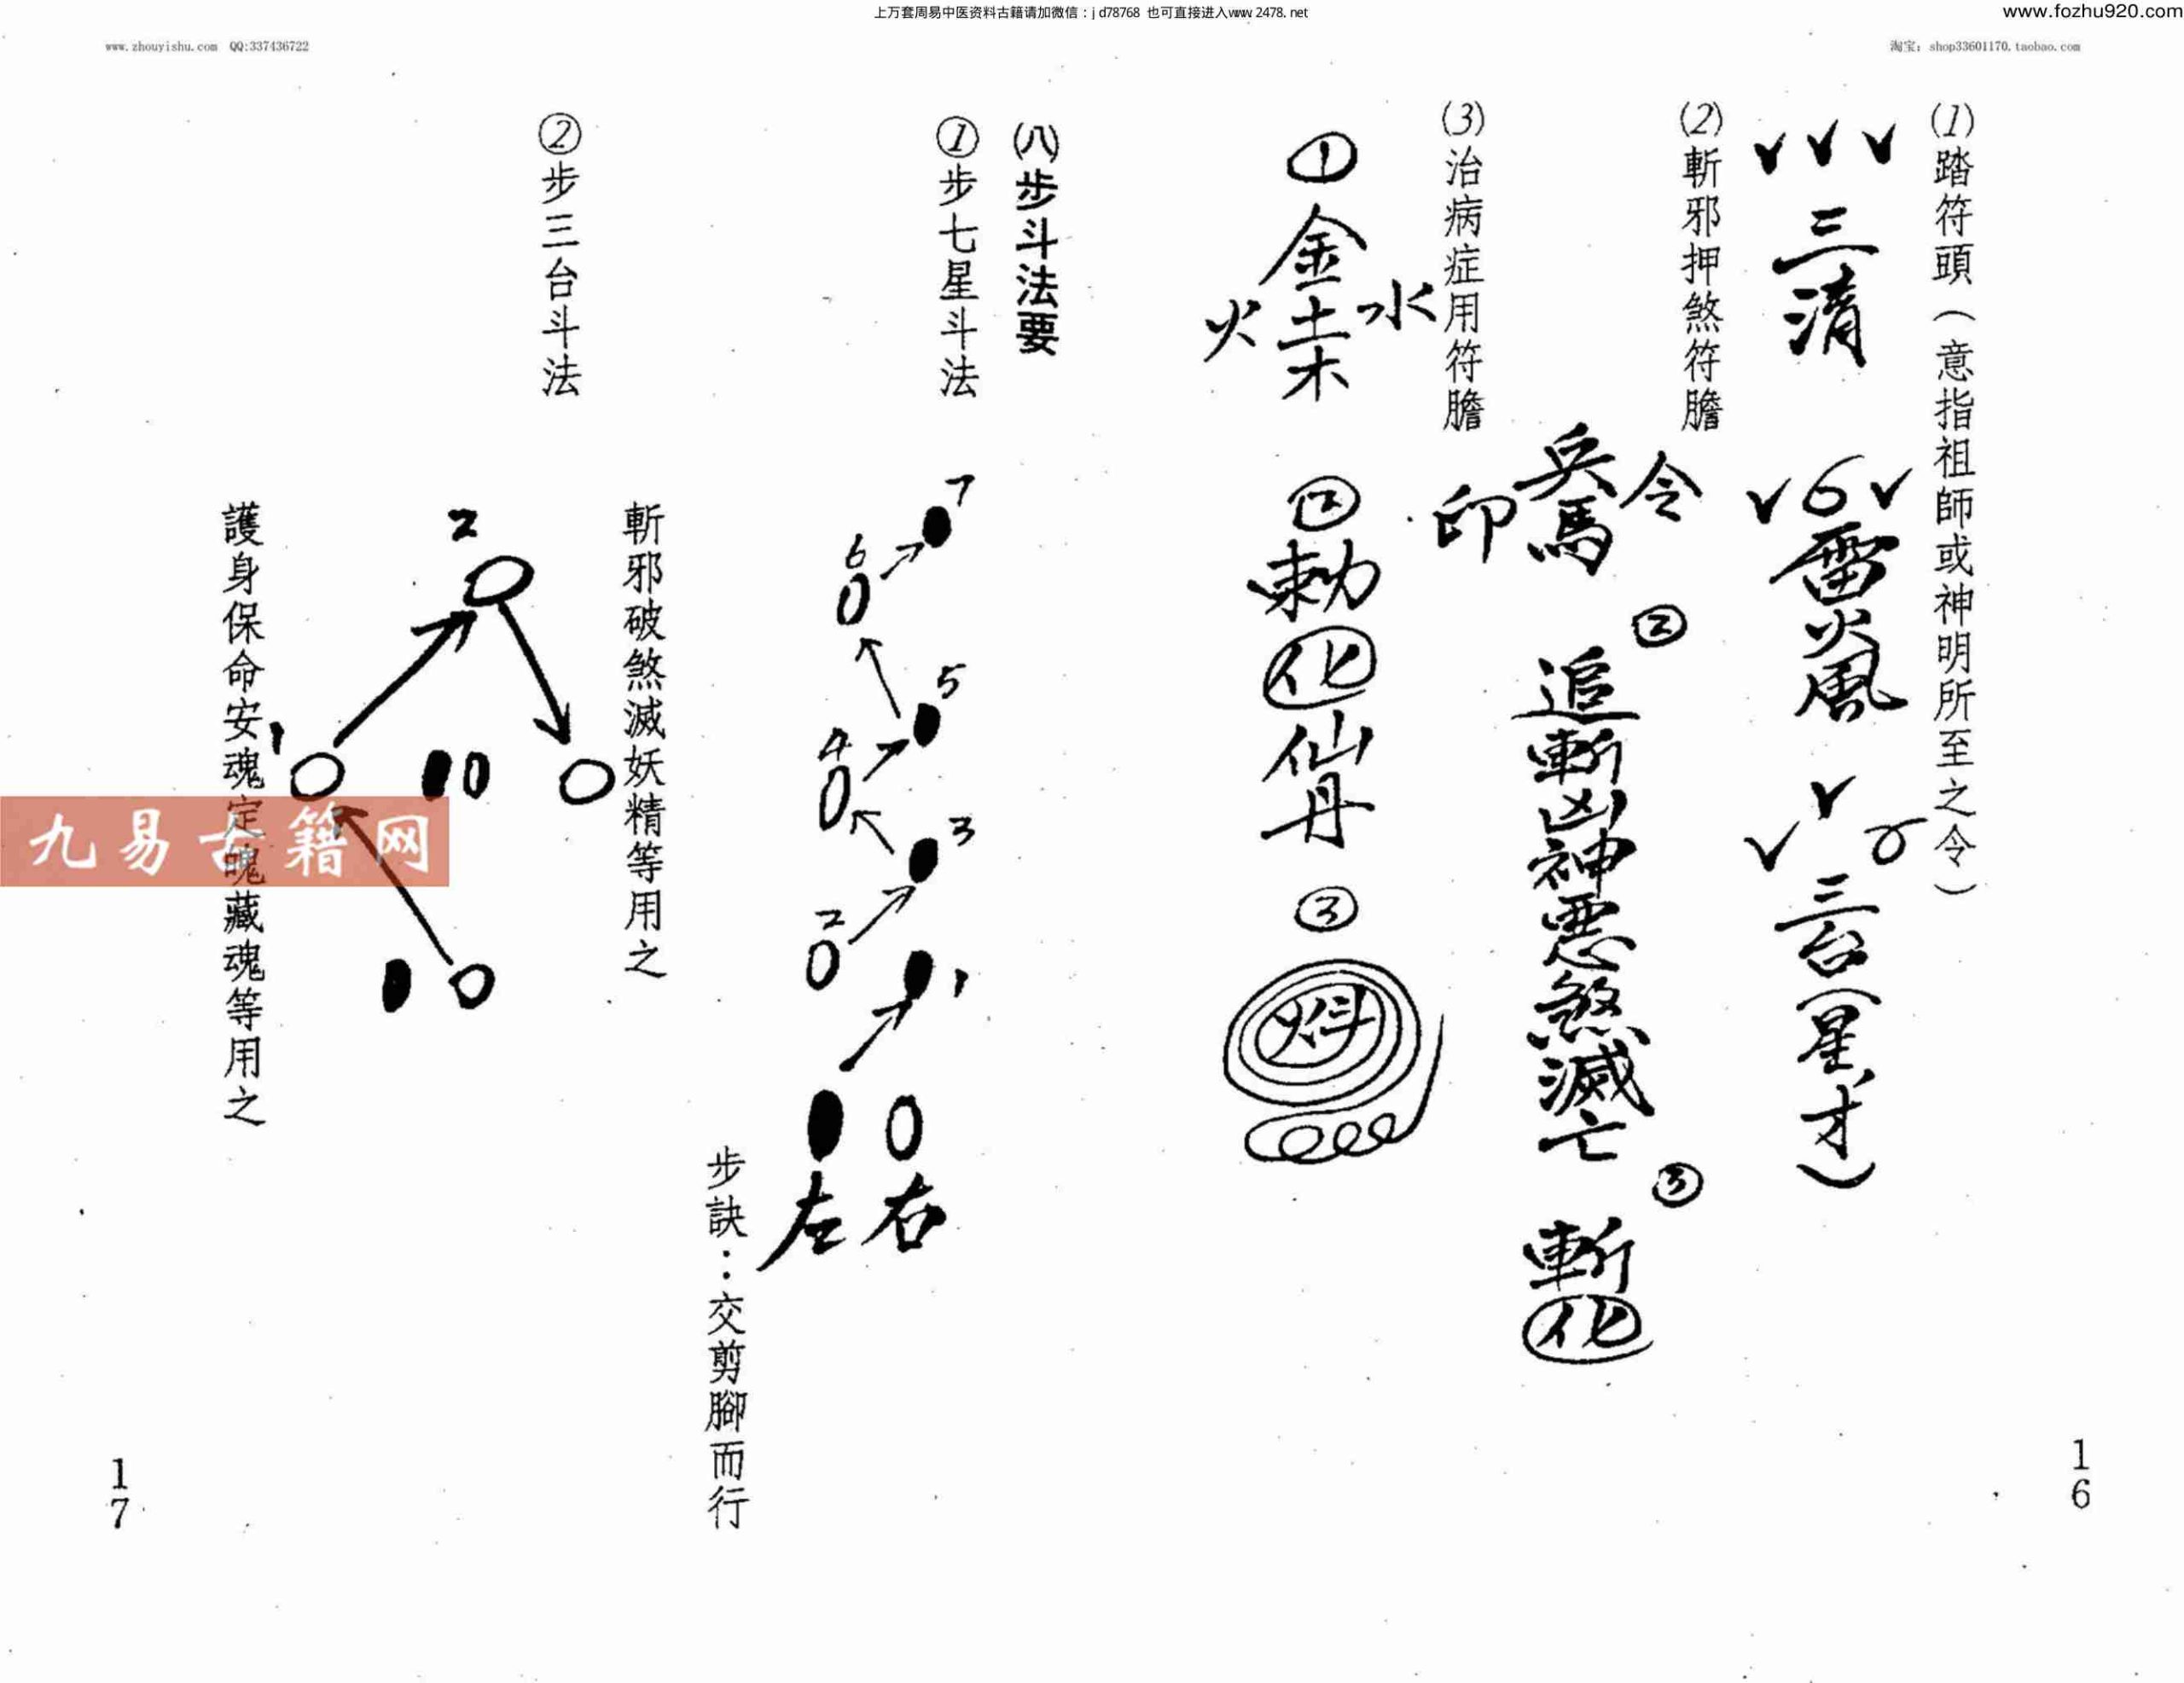 上万套周易中医资料古籍请加微信：jd78768 也可直接进入www.2478.net
www.fozhu920.com
www.zhouyishu.com QQ:337436722
淘宝：shop33601170.taobao.com
(1)踏符頭（意指祖師或神明所至之令）
三清
雷火風
三台（星才）
(2)斬邪押煞符膽
令
兵馬
印
②
追斬凶神惡煞滅亡
③
斬化
(3)治病症用符膽
①
水
金土木
火
②
勅化仙丹
③
(八)步斗法要
①步七星斗法
7
6
5
4
3
2
1
右
左
步訣：交剪腳而行
斬邪破煞滅妖精等用之
②步三台斗法
2
1
護身保命安魂定魄藏魂等用之
九易古籍网
16
17